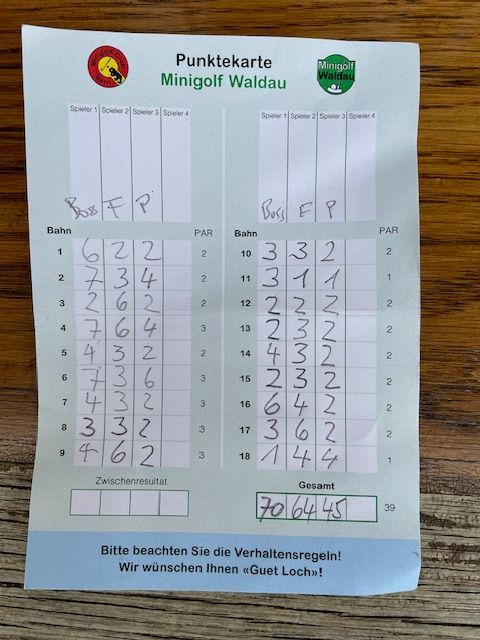 Minigolf-Club
Bern
Punktekarte
Minigolf Waldau
Minigolf
Waldau
Spieler 1 Spieler 2 Spieler 3 Spieler 4
Boss F P
Bahn PAR
1 6 2 2 2
2 7 3 4 2
3 2 6 2 2
4 7 6 4 3
5 4 3 2 2
6 7 3 6 3
7 4 3 2 3
8 3 3 2 3
9 4 6 2 3
Zwischenresultat
Spieler 1 Spieler 2 Spieler 3 Spieler 4
Boss F P
Bahn PAR
10 3 3 2 2
11 3 1 1 1
12 2 2 2 2
13 2 3 2 2
14 4 3 2 2
15 2 3 2 2
16 6 4 2 2
17 3 6 2 2
18 1 4 4 1
Gesamt
70 64 45 39
Bitte beachten Sie die Verhaltensregeln!
Wir wünschen Ihnen «Guet Loch»!